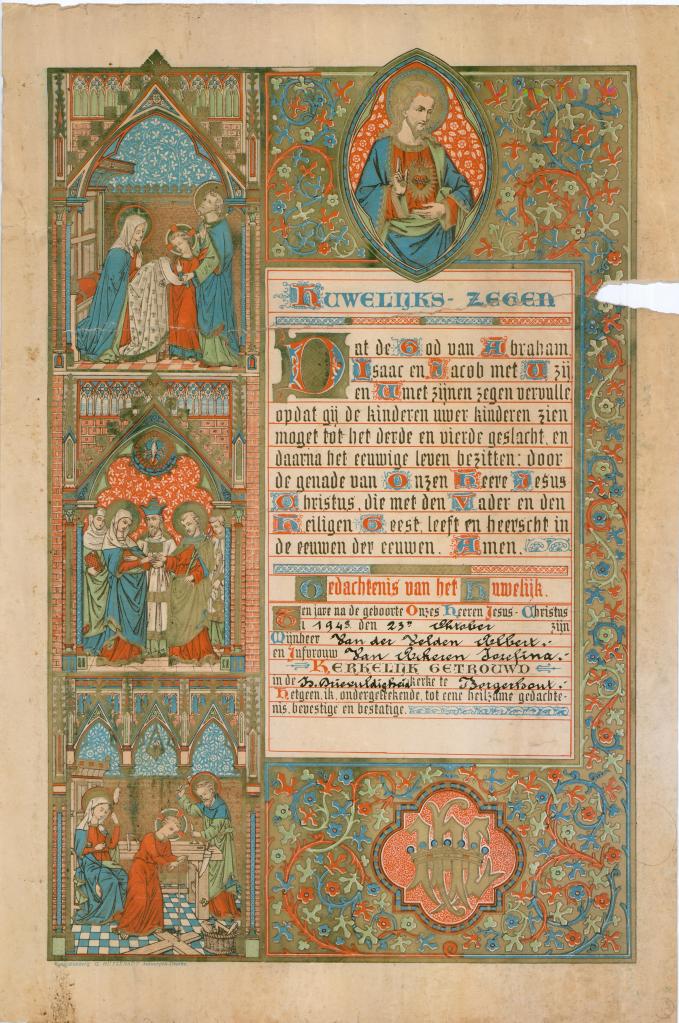 Huwelijks-Zegen
Dat de God van Abraham,
Isaac en Jacob met U zij
en U met zijnen zegen vervulle
opdat gij de kinderen uwer kinderen zien
moget tot het derde en vierde geslacht, en
daarna het eeuwige leven bezitten: door
de genade van Onzen Heere Jesus
Christus, die met den Vader en den
Heiligen Geest, leeft en heerscht in
de eeuwen der eeuwen. Amen.
Gedachtenis van het Huwelijk.
Ten jare na de geboorte Onzes Heeren Jesus-Christus
den 23n Oktober zijn
Mijnheer Van der Velden Albert.
en Jufvrouw Van Ackeren Josefina.
KERKELIJK GETROUWD
in de H. Drievuldigheid kerke te Borgerhout.
Hetgeen, ik, ondergeteekende, tot eene heilzame gedachte-
nis, bevestige en bestatige.
IHS